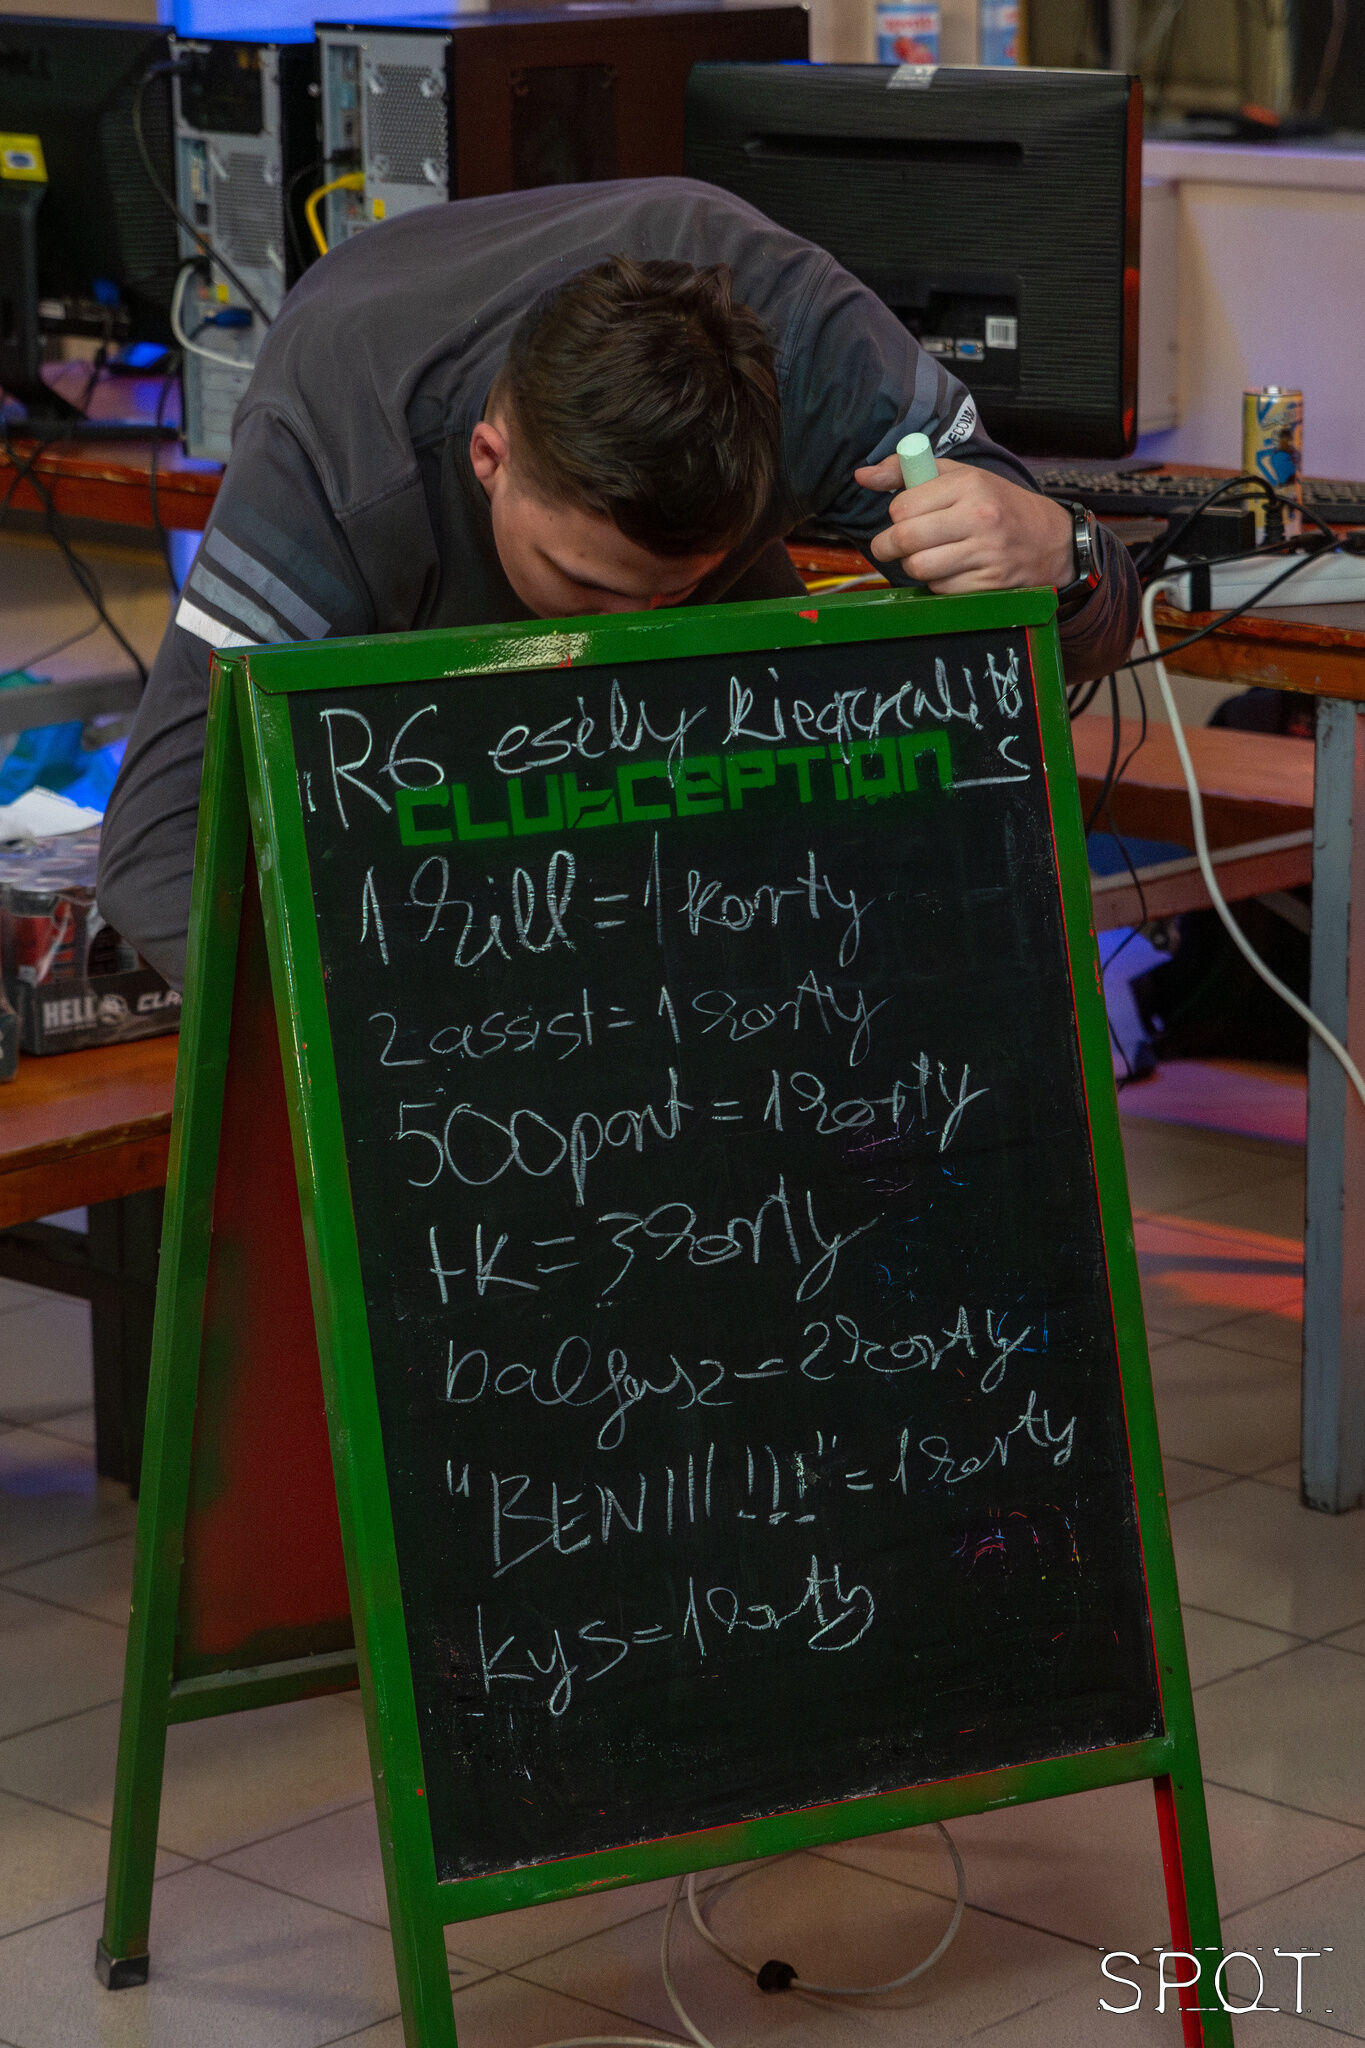 R6 esély kiegyenlítő
CLUBCEPTION
1 kill = 1 korty
2 assist = 1 korty
500 pont = 1 korty
tk = 3 korty
balfasz = 2 korty
"BEN!!! !!!" = 1 korty
kys = 1 korty
HELL
CLA
SPOT